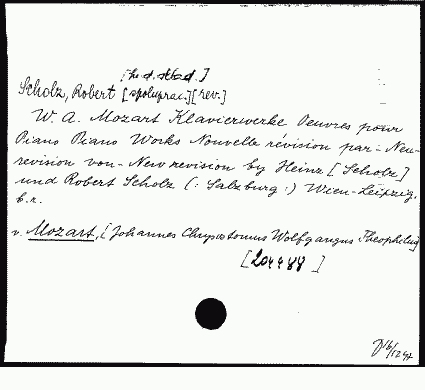 Scholz, Robert [spoluprac.][rev.]
W. A. Mozart Klavierwerke Oeuvres pour
Piano Piano Works Nouvelle révision par - Neu-
revision von - New revision by Heinz [Scholz]
und Robert Scholz (: Salzburg :) Wien-Leipzig,
b.r.
v. Mozart, [Johannes Chrysostomus Wolfgangus Theophilus]
[204488]